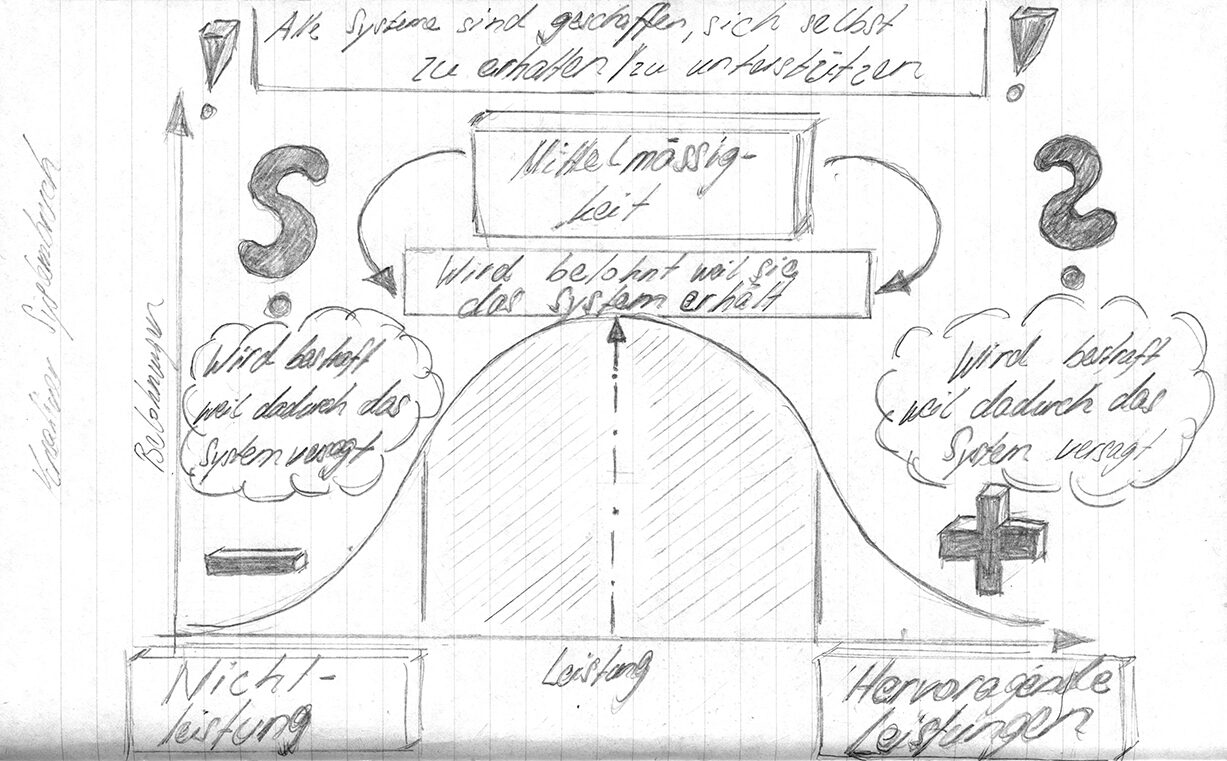 Alle Systeme sind geschaffen, sich selbst
zu erhalten/zu unterstützen
!
!
Mittelmässig-
keit
?
Wird belohnt weil sie
das System erhält
Wird bestraft
weil dadurch das
System versagt
Wird bestraft
weil dadurch das
System versagt
Belohnungen
Nicht-
leistung
Leistung
Hervoragende
Leistungen